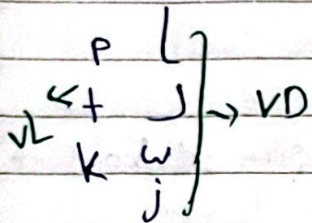 p l
VL ← t J → VD
k w
j